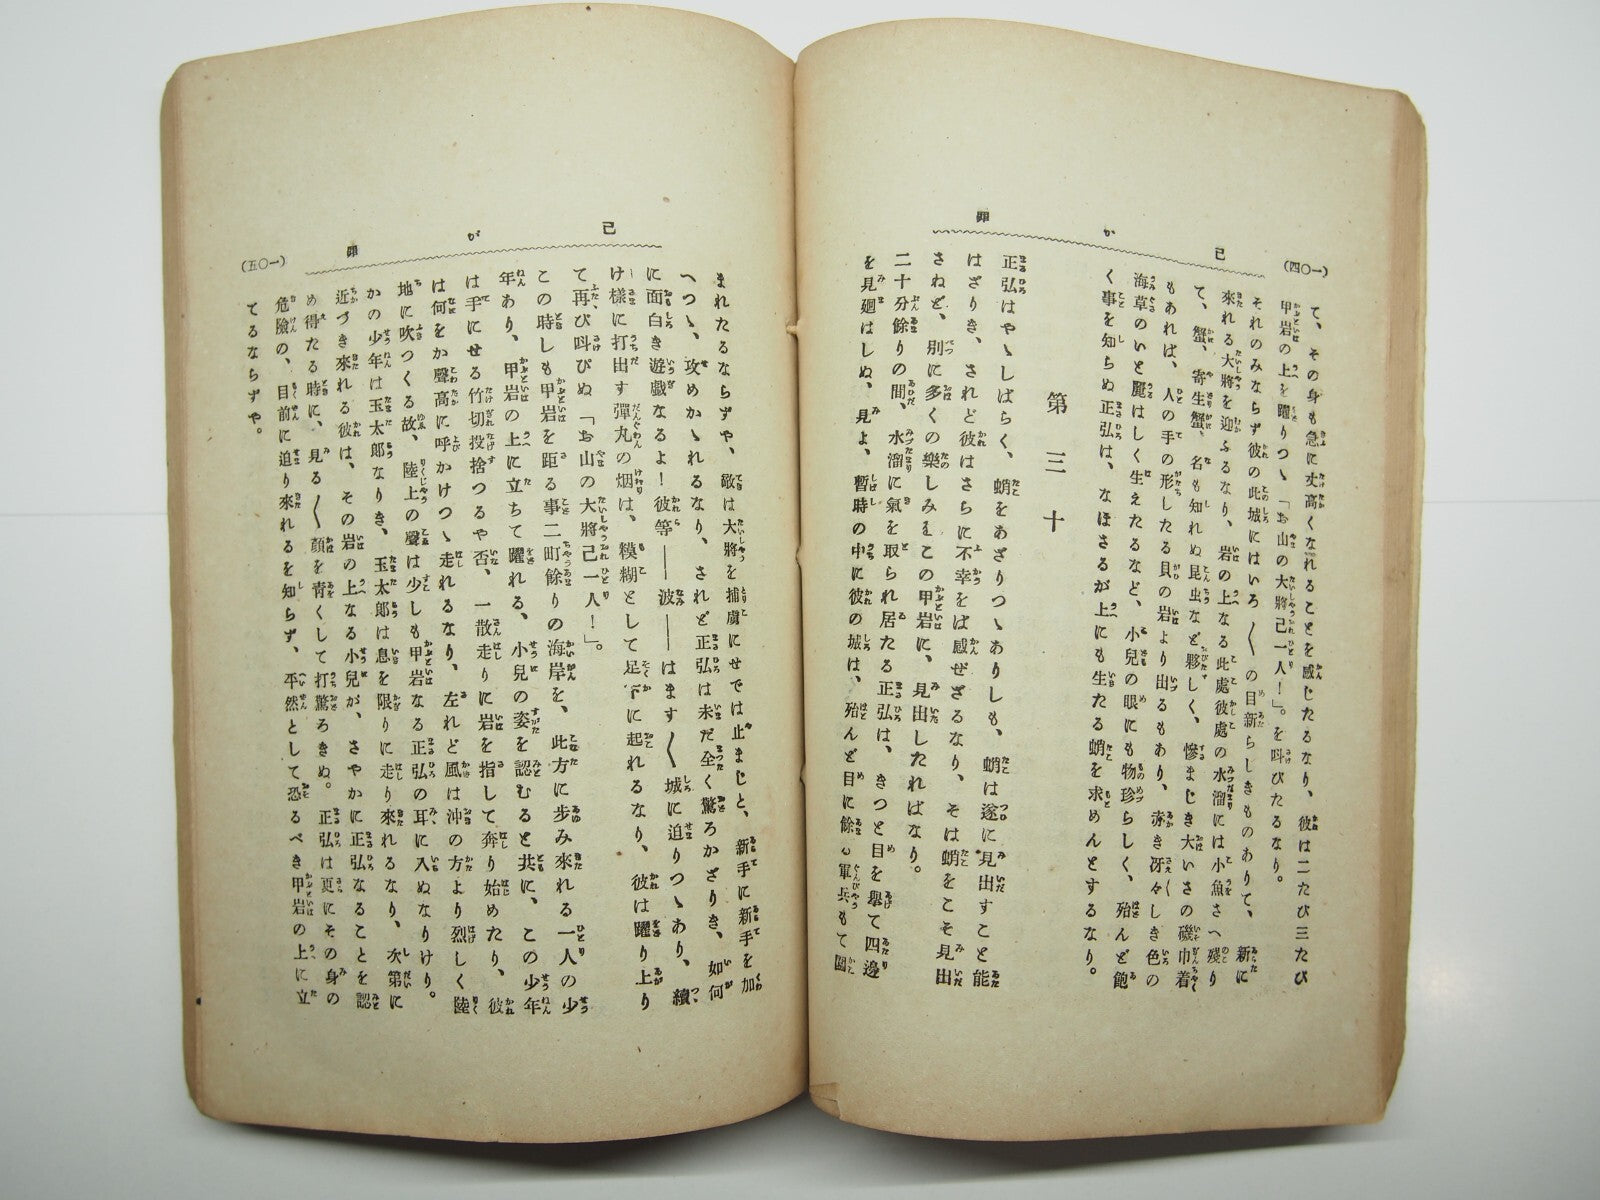 (一〇四)
己が卵
て、その身も急に丈高くなれることを感じたるなり、彼は二たび三たび
甲岩の上を躍りつゝ「お山の大將己一人！」。を叫びたるなり。
それのみならず彼の此城にはいろ〳〵の目新らしきものありて、新に
來れる大將を迎ふるなり、岩の上なる此處彼處の水溜には小魚さへ殘り
て、蟹、寄生蟹、名も知れぬ昆虫など夥しく、慘まじき大いさの磯巾着
もあれば、人の手の形したる貝の岩より出るもあり、赤き冴々しき色の
海草のいと麗はしく生えたるなど、小兒の眼にも物珍らしく、殆んど飽
く事を知らぬ正弘は、なほさるが上にも生たる蛸を求めんとするなり。
第三十
正弘はやゝしばらく、蛸をあざりつゝありしも、蛸は遂に見出すこと能
はざりき、されど彼はさらに不幸をば感ぜざるなり、そは蛸をこそ見出
さねど、別に多くの樂しみをこの甲岩に、見出したればなり。
二十分餘りの間、水溜に氣を取られ居たる正弘は、きつと目を擧て四邊
を見廻はしぬ、見よ、暫時の中に彼の城は、殆んど目に餘る軍兵もて圍
(一〇五)
己が卵
まれたるならずや、敵は大將を捕虜にせでは止まじと、新手に新手を加
へつゝ、攻めかゝれるなり、されど正弘は未だ全く驚ろかざりき、如何
に面白き遊戯なるよ！彼等――波――はます〳〵城に迫りつゝあり、續
け樣に打出す彈丸の烟は、糢糊として足下に起れるなり、彼は躍り上り
て再び叫びぬ「お山の大將己一人！」。
この時しも甲岩を距る事二町餘りの海岸を、此方に歩み來れる一人の少
年あり、甲岩の上に立ちて躍れる、小兒の姿を認むると共に、この少年
は手にせる竹切投捨つるや否、一散走りに岩を指して奔り始めたり、彼
は何をか聲高に呼かけつゝ走れるなり、左れど風は沖の方より烈しく陸
地に吹つくる故、陸上の聲は少しも甲岩なる正弘の耳に入ぬなりけり。
かの少年は玉太郎なりき、玉太郎は息を限りに走り來れるなり、次第に
近づき來れる彼は、その岩の上なる小兒が、さやかに正弘なることを認
め得たる時に、見る〳〵顔を青くして打驚ろきぬ。正弘は更にその身の
危險の、目前に迫り來れるを知らず、平然として恐るべき甲岩の上に立
てるならずや。